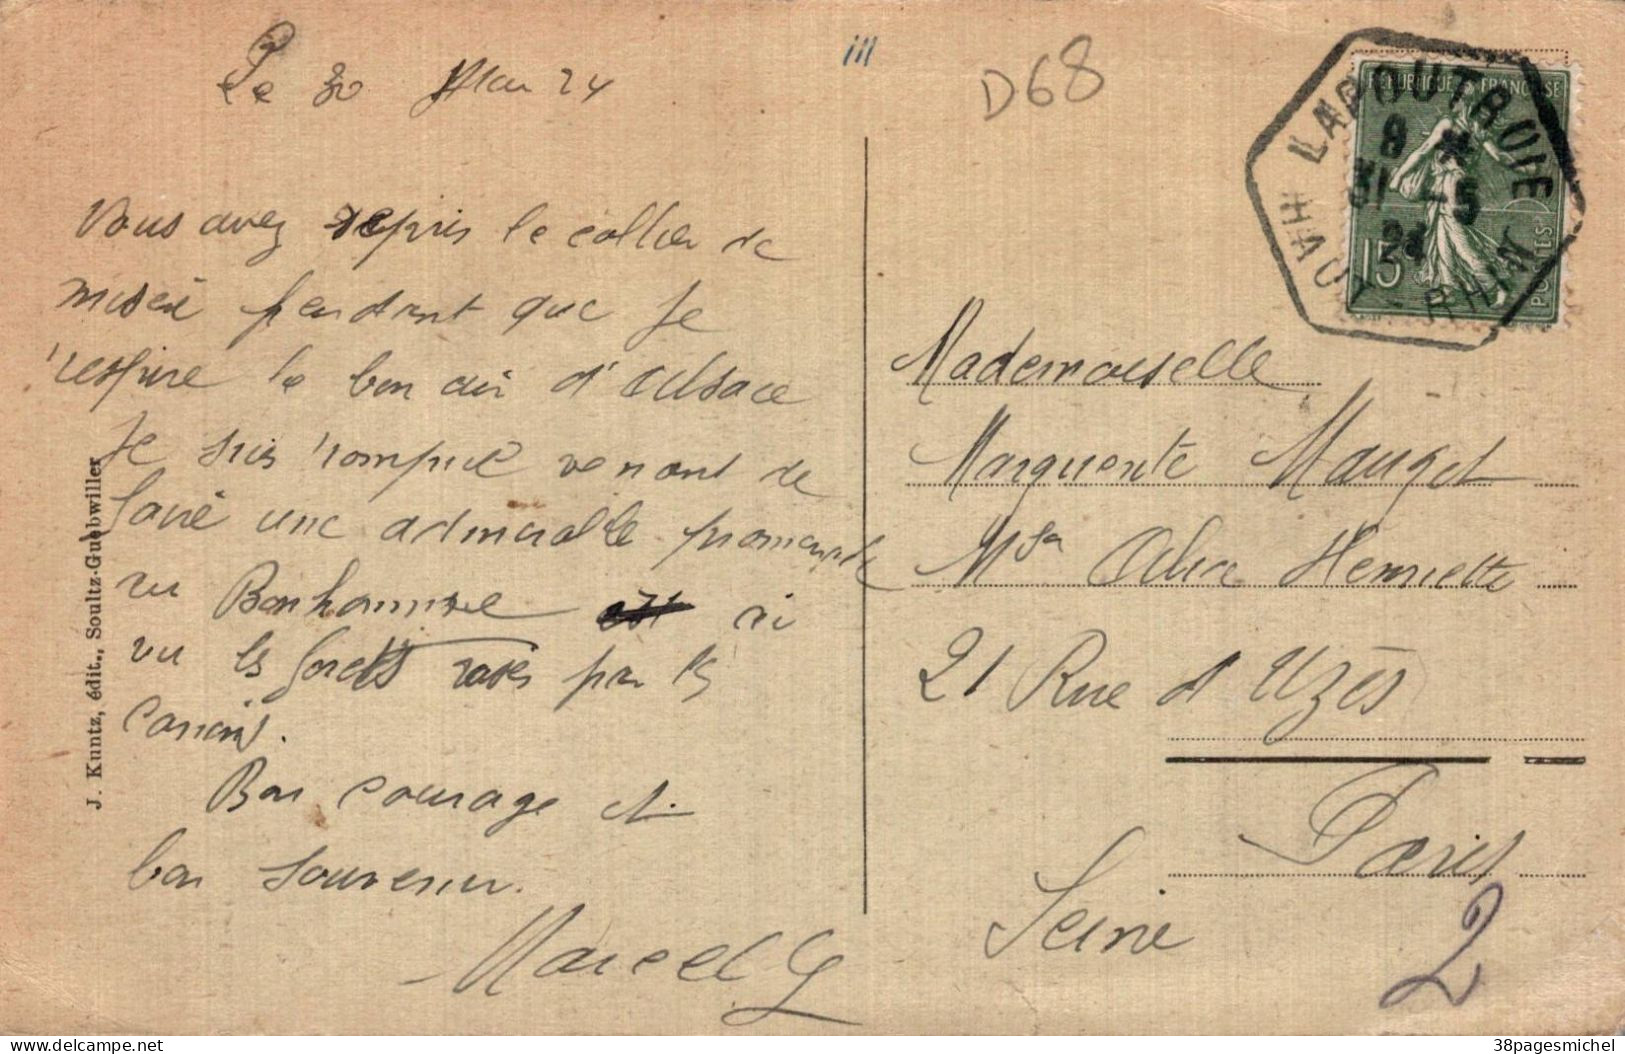 Le 30 Mai 24
D68
Vous avez repris le collier de
misère pendant que je
respire le bon air d'Alsace
Je suis rompue venant de
faire une admirable promenade
au Bonhomme
vu les forets rasés par les
canons.
Bon courage et
bon souvenir.
Marcel G
J. Kuntz, édit., Soultz-Guebwiller
REPUBLIQUE FRANÇAISE
15
POSTES
LAPOUTROIE
8
31 -5
24
HAUT-RHIN
Mademoiselle
Marguerite Mauget
Mson Alice Henriette
21 Rue d'Uzès
Paris
Seine
2
delcampe.net
38pagesmichel